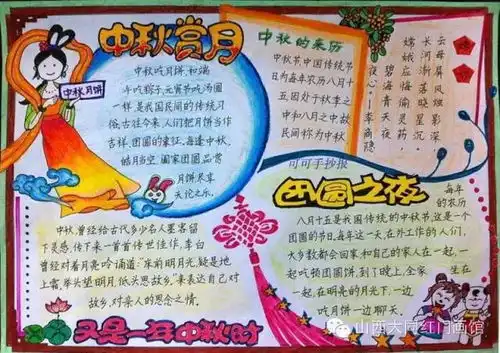 中秋赏月
中秋月饼
中秋吃月饼,和端
午吃粽子、元宵节吃汤圆
一样是我国民间的传统习
俗,古往今来,人们把月饼当作
吉祥、团圆的象征,每逢中秋,
皓月当空,阖家团圆品赏
月饼尽享
天伦之乐。
中秋的来历
中秋节中国传统节
日为每年农历八月十
五因处于秋季之
中和八月之中故
民间称为中秋
嫦娥
云母屏风烛影深
长河渐落晓星沉
嫦娥应悔偷灵药
碧海青天夜
夜心!李商隐
可可手抄报
团圆之夜
每年
的农历
八月十五是我国传统的中秋节,这是一个
团圆的节日,每年这一天,在外工作的人们,
大多数都会回家,和自己的家人在一起,一
起吃顿团圆饼,到了晚上,全家
坐在
一起,在明亮的月光下,一边
吃月饼一边聊天。
中秋,曾经给古代多少名人墨客留
下灵感,传下来一首首传世佳作,李白
曾经对着月亮吟诵道:“床前明月光,疑是地
上霜,举头望明月,低头思故乡。”来表达自己对
故乡,对亲人的思念之情。
又是一年中秋时
山西大同红门画馆